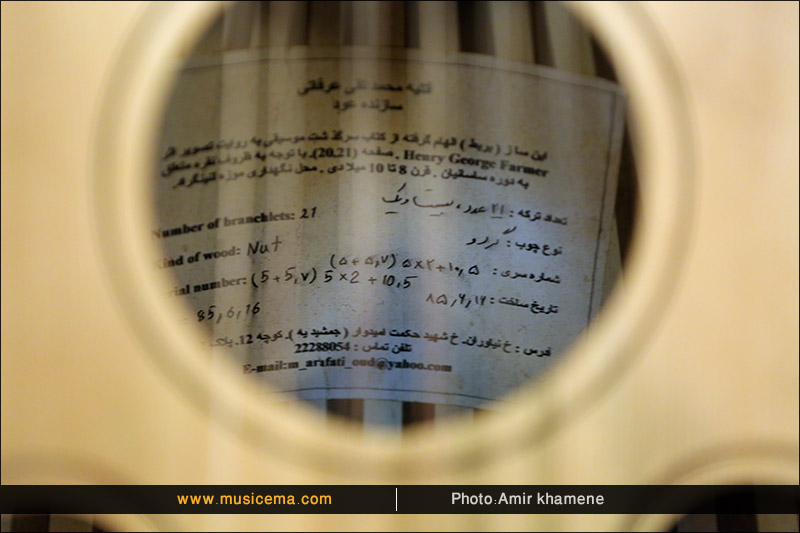 محمد تقی عرفاتی
سازنده عود
این ساز ( بربط ) الهام گرفته از کتاب سرگذشت موسیقی به روایت تصویر اثر
Henry George Farmer . صفحه (20,21). با توجه به ظروف نقره متعلق
به دوره ساسانیان . قرن 8 تا 10 میلادی . محل نگهداری موزه
تعداد ترکه : 21 عدد، بیست و یک
Number of branchlets: 21
نوع چوب : گردو
Kind of wood: Nut
شماره سری : ۵ ,۱۰+۲×۵ (۵+۵,۷)
serial number: (5+5,7) 5×2+10,5
تاریخ ساخت : ۸۵,۶,۱۶
85,6,16
آدرس : خ نیاوران. خ شهید حکمت امیدوار ( جمشیدیه ). کوچه 12. پلاک
تلفن تماس : 22288054
E-mail:m_arafati_oud@yahoo.com
www.musicema.com
Photo:Amir khamene